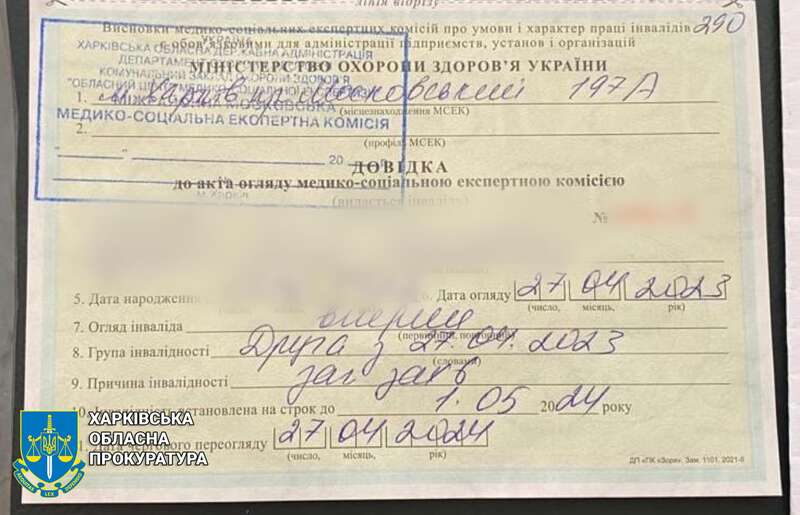 лінія відрізу
Висновки медико-соціальних експертних комісій про умови і характер праці інвалідів 290
є обов'язковими для адміністрації підприємств, установ і організацій
УКРАЇНА
ХАРКІВСЬКА ОБЛАСНА ДЕРЖАВНА АДМІНІСТРАЦІЯ
ДЕПАРТАМЕНТ ОХОРОНИ ЗДОРОВ'Я
КОМУНАЛЬНИЙ ЗАКЛАД ОХОРОНИ ЗДОРОВ'Я
"ОБЛАСНИЙ ЦЕНТР МЕДИКО-СОЦІАЛЬНОЇ ЕКСПЕРТИЗИ"
МОСКОВСЬКА
МЕДИКО-СОЦІАЛЬНА ЕКСПЕРТНА КОМІСІЯ
20
м. Харків
МІНІСТЕРСТВО ОХОРОНИ ЗДОРОВ'Я УКРАЇНИ
1. м. Харків Московський 197А
(місцезнаходження МСЕК)
2.
(профіль МСЕК)
ДОВІДКА
до акта огляду медико-соціальною експертною комісією
(видається інваліду)
№
5. Дата народження 6. Дата огляду 27 04 2023
(число, місяць, рік)
7. Огляд інваліда
(первинний, повторний)
8. Група інвалідності Друга з 27.04.2023
(словами)
9. Причина інвалідності заг зах
10. встановлена на строк до 1.05 2024 року
11. Дата чергового переогляду 27 04 2024
(число, місяць, рік)
ХАРКІВСЬКА
ОБЛАСНА
ПРОКУРАТУРА
ДП «ПК «Зоря». Зам. 1101. 2021-б